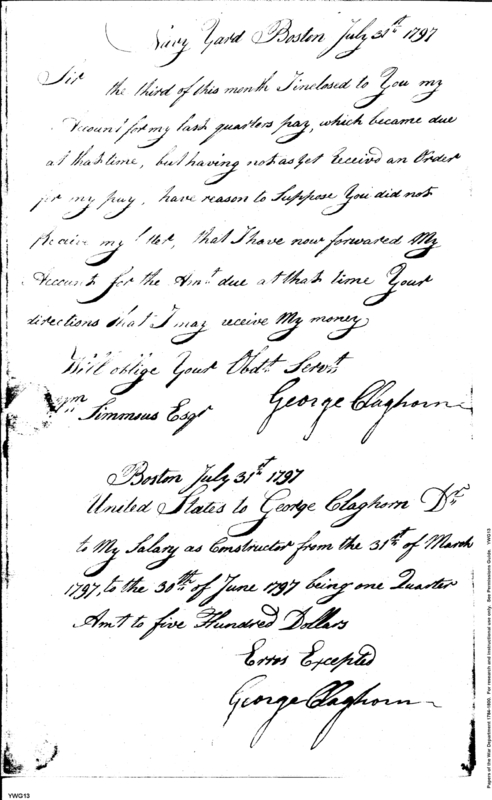 Navy Yard Boston July 31st 1797
Sir the third of this month I inclosed to You my
Account for my last quarters pay, which became due
at that time, but having not as yet Receivd an Order
for my pay, have reason to Suppose You did not
Receive my that I have now forwarded My
Account for the Amt due at that time Your
directions that I may receive My money
Will oblige Your Obdt Servt
George Claghorn
Wm Simmons Esqr
Boston July 31st 1797
United States to George Claghorn Dr
to My Salary as Constructor from the 31st of March
1797, to the 30th of June 1797 being one Quarter
Amt to five Hundred Dollars
Erros Excepted
George Claghorn
YWG13
Papers of the War Department 1784-1800. For research and instructional use only. See Permissions Guide. YWG13